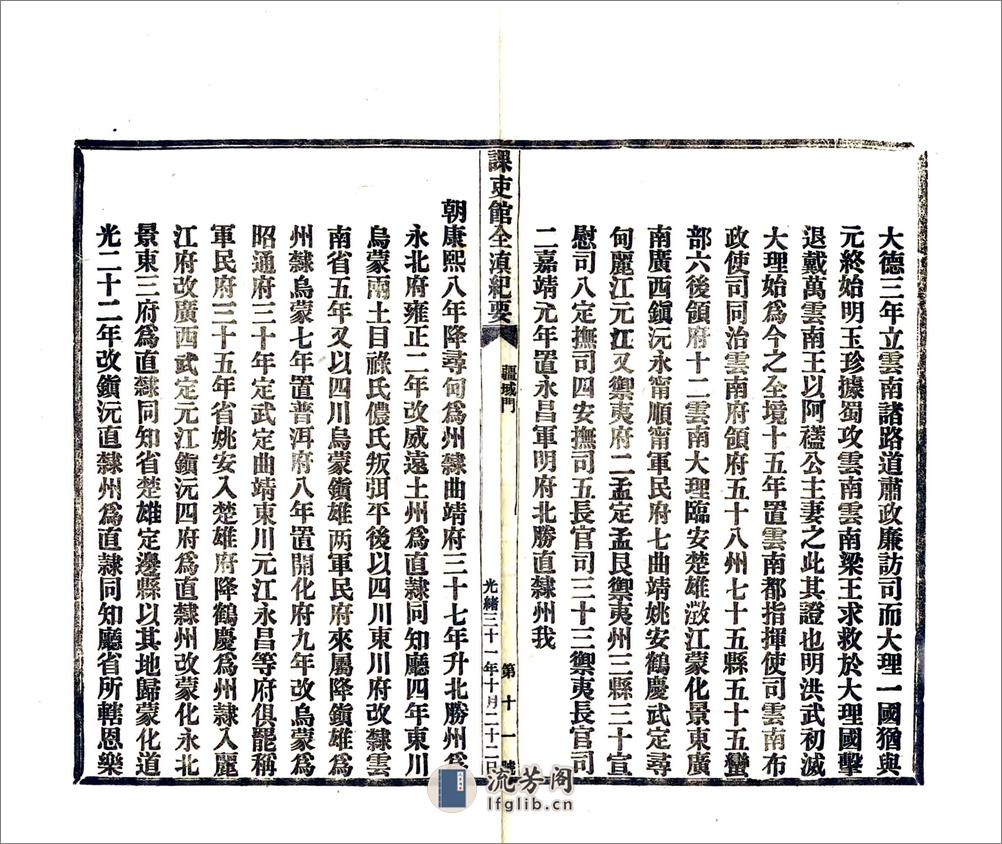 大德三年立雲南諸路道肅政廉訪司而大理一國猶與
元終始明玉珍據蜀攻雲南雲南梁王求救於大理國擊
退戴萬雲南王以阿𧝁公主妻之此其證也明洪武初滅
大理始爲今之全境十五年置雲南都指揮使司雲南布
政使司同治雲南府領府五十八州七十五縣五十五蠻
部六後領府十二雲南大理臨安楚雄澂江蒙化景東廣
南廣西鎭沅永甯順甯軍民府七曲靖姚安鶴慶武定尋
甸麗江元江又禦夷府二孟定孟艮禦夷州三縣三十宣
慰司八定撫司四安撫司五長官司三十三禦夷長官司
二嘉靖元年置永昌軍明府北勝直隸州我
課吏館全滇紀要
疆域門
第十一號
光緒三十一年十月二十二日
朝康熙八年降尋甸爲州隸曲靖府三十七年升北勝州爲
永北府雍正二年改威遠土州爲直隸同知廳四年東川
烏蒙兩土目祿氏儂氏叛弭平後以四川東川府改隸雲
南省五年又以四川烏蒙鎭雄两軍民府來屬降鎭雄爲
州隸烏蒙七年置普洱府八年置開化府九年改烏蒙爲
昭通府三十年定武定曲靖東川元江永昌等府俱罷稱
軍民府三十五年省姚安入楚雄府降鶴慶爲州隸入麗
江府改廣西武定元江鎭沅四府爲直隸州改蒙化永北
景東三府爲直隸同知省楚雄定邊縣以其地歸蒙化道
光二十二年改鎭沅直隸州爲直隸同知廳省所轄恩樂
流芳阁
lfglib.cn